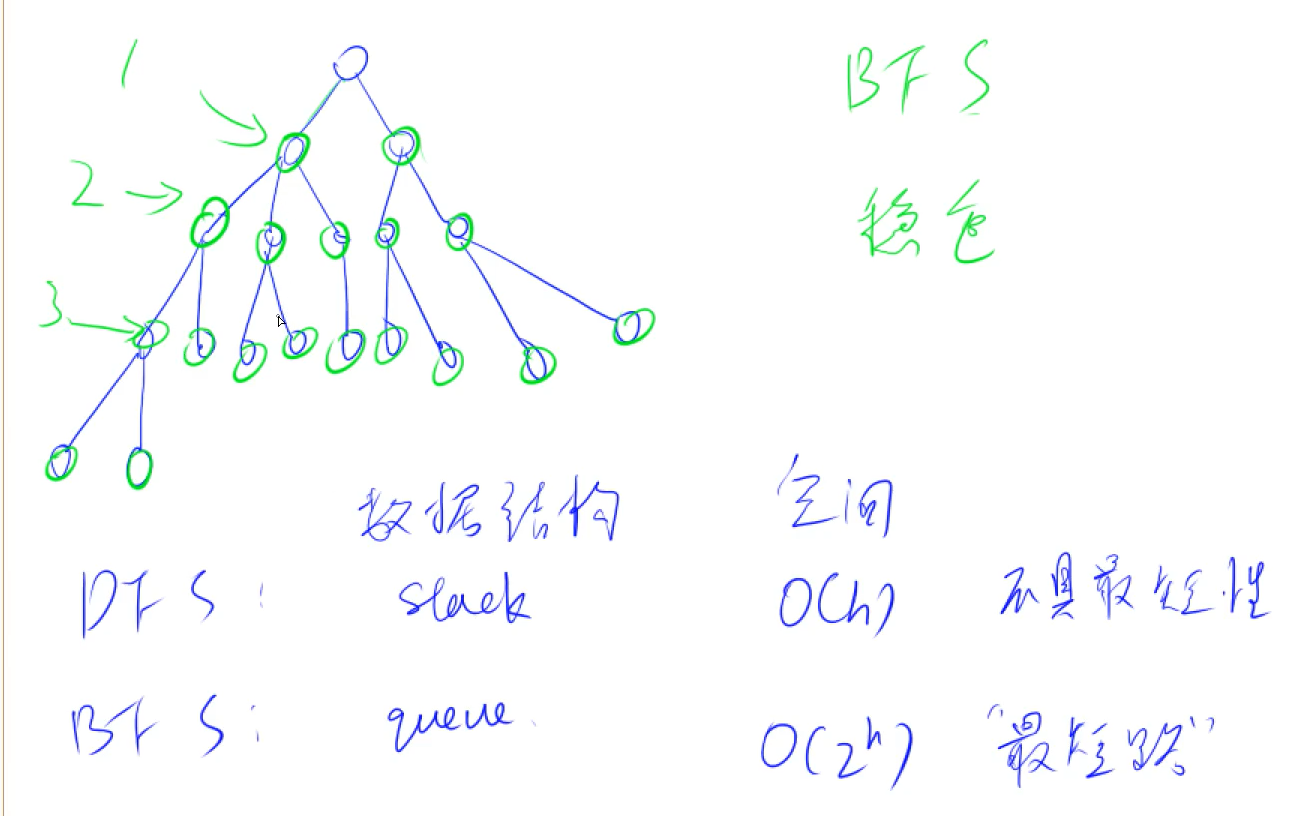 1
BFS
2
稳
3
数据结构 空间
DFS: stack O(h) 不具最短性
BFS: queue. O(2^h) "最短路"